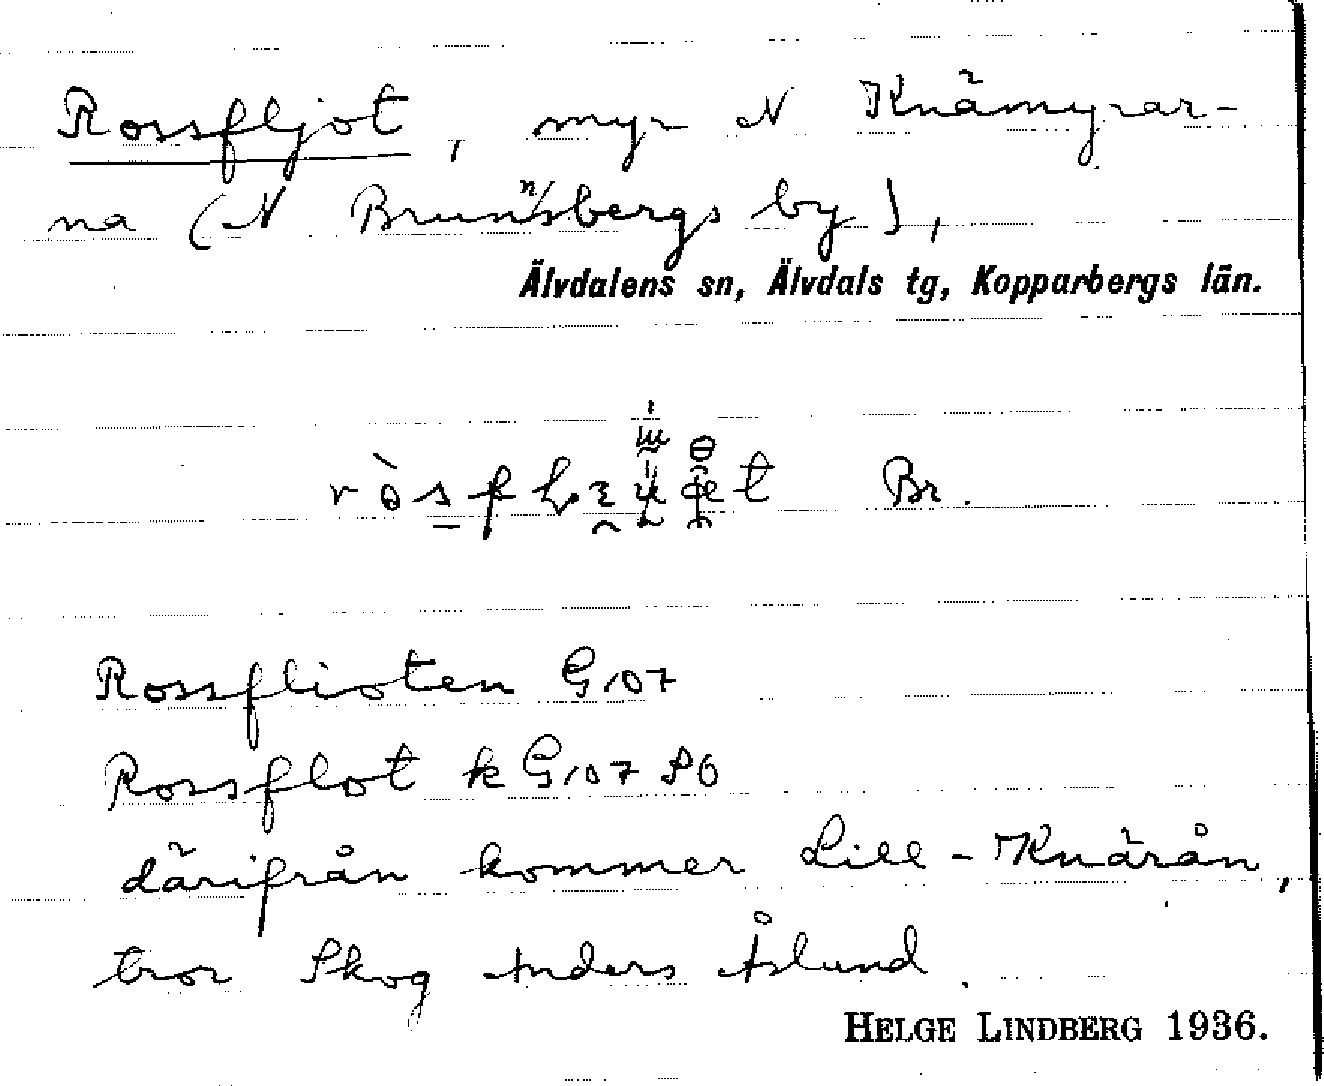 Rossfljot, myr N Knämyrar-
na (N Brunnsbergs by),
Älvdalens sn, Älvdals tg, Kopparbergs län.
Br.
Rossflioten G107
Rossflot k G107 SÖ
därifrån kommer Lill-Knärån,
tror Skog Anders Åslund.
HELGE LINDBERG 1936.